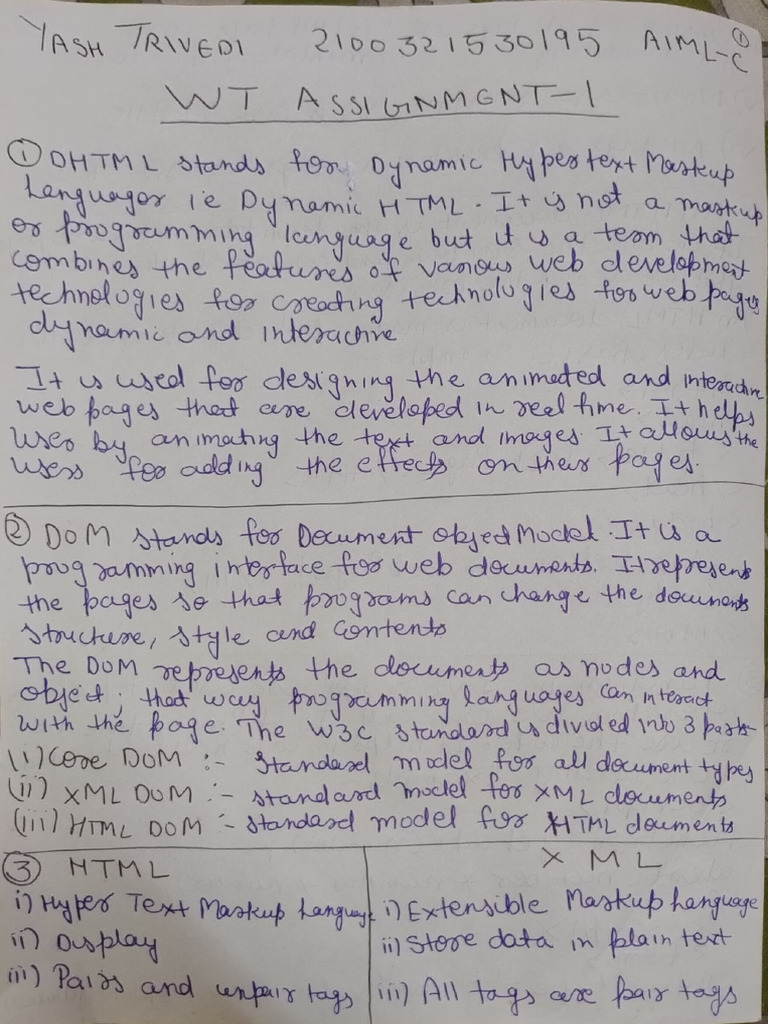 YASH TRIVEDI 2100321530195 AIML-C ①
WT ASSIGNMENT-1
① DHTML stands for Dynamic Hypertext Markup
Languages ie Dynamic HTML. It is not a markup
or programming language but it is a term that
combines the features of various web development
technologies for creating technologies for web pages
dynamic and interactive
It is used for designing the animated and interactive
web pages that are developed in real time. It helps
user by animating the text and images. It allows the
users for adding the effects on their pages.
② DOM stands for Document object Model. It is a
programming interface for web documents. It represents
the pages so that programs can change the documents
structure, style and contents
The DOM represents the documents as nodes and
object; that way programming languages can interact
with the page. The W3C standard is divided into 3 parts-
(i) Core DOM :- Standard model for all document types
(ii) XML DOM :- standard model for XML documents
(iii) HTML DOM :- standard model for HTML douments
③ HTML
i) Hyper Text Markup Language
ii) Display
iii) Pairs and unpair tags
XML
i) Extensible Markup Language
ii) Store data in plain text
iii) All tags are pair tags